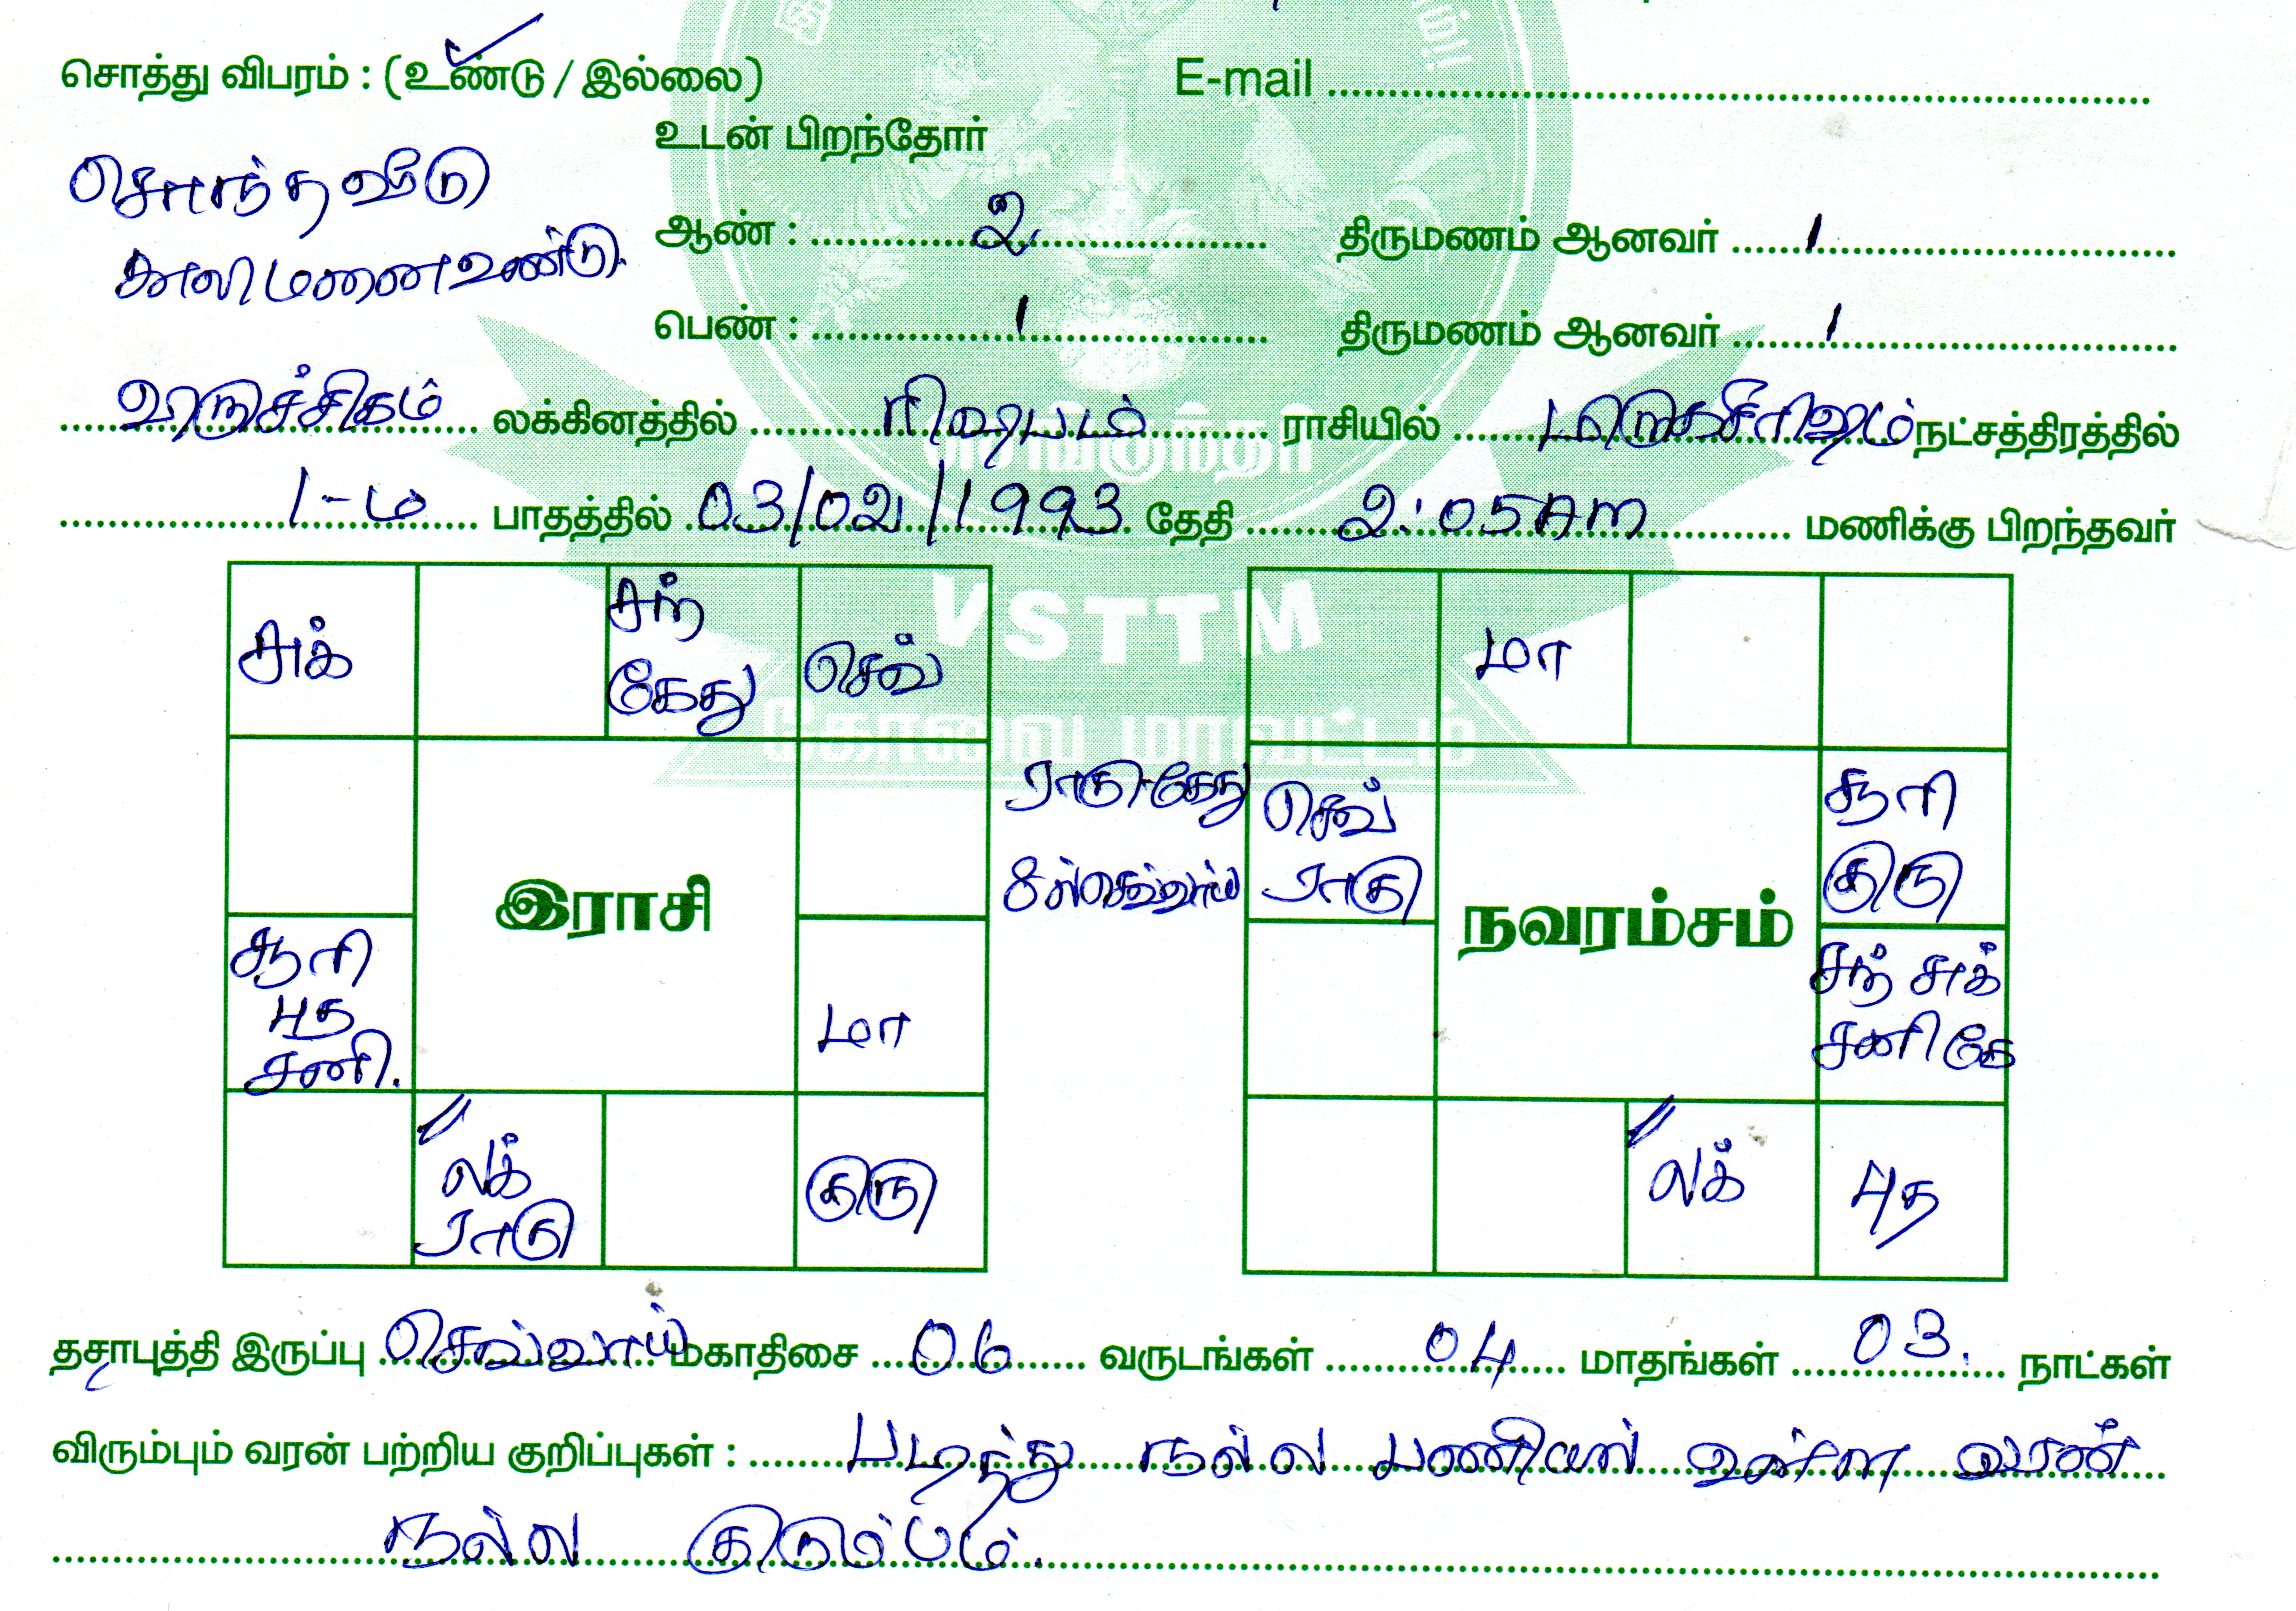 சொத்து விபரம் : (உண்டு / இல்லை) E-mail
உடன் பிறந்தோர்
சொந்த வீடு
காலி மனை உண்டு.
ஆண் : 2 திருமணம் ஆனவர் 1
பெண் : 1 திருமணம் ஆனவர் 1
விருச்சிகம் லக்கினத்தில் ரிஷபம் ராசியில் மிருகசீரிஷம் நட்சத்திரத்தில்
செங்குந்தர்
1-ம் பாதத்தில் 03/02/1993 தேதி 2:05 AM மணிக்கு பிறந்தவர்
VSTTM
கோவை மாவட்டம்
சுக் சந் கேது செவ்
மா
ராகு-கேது
8ல் செவ்வாய்
செவ் ராகு சூரி குரு
இராசி நவரம்சம்
சூரி புத சனி. மா
சந் சுக் சனி கே
லக் ராகு குரு
லக் புத
தசாபுத்தி இருப்பு செவ்வாய் மகாதிசை 06 வருடங்கள் 04 மாதங்கள் 03. நாட்கள்
விரும்பும் வரன் பற்றிய குறிப்புகள் : படித்து நல்ல பணியில் உள்ள வரன்
நல்ல குடும்பம்.